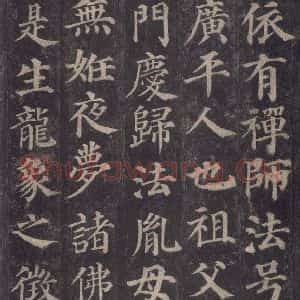 依有禪師法号
廣平人也祖父
門慶歸法胤母
無姙夜夢諸佛
是生龍象之徵
Shufawang.Cn